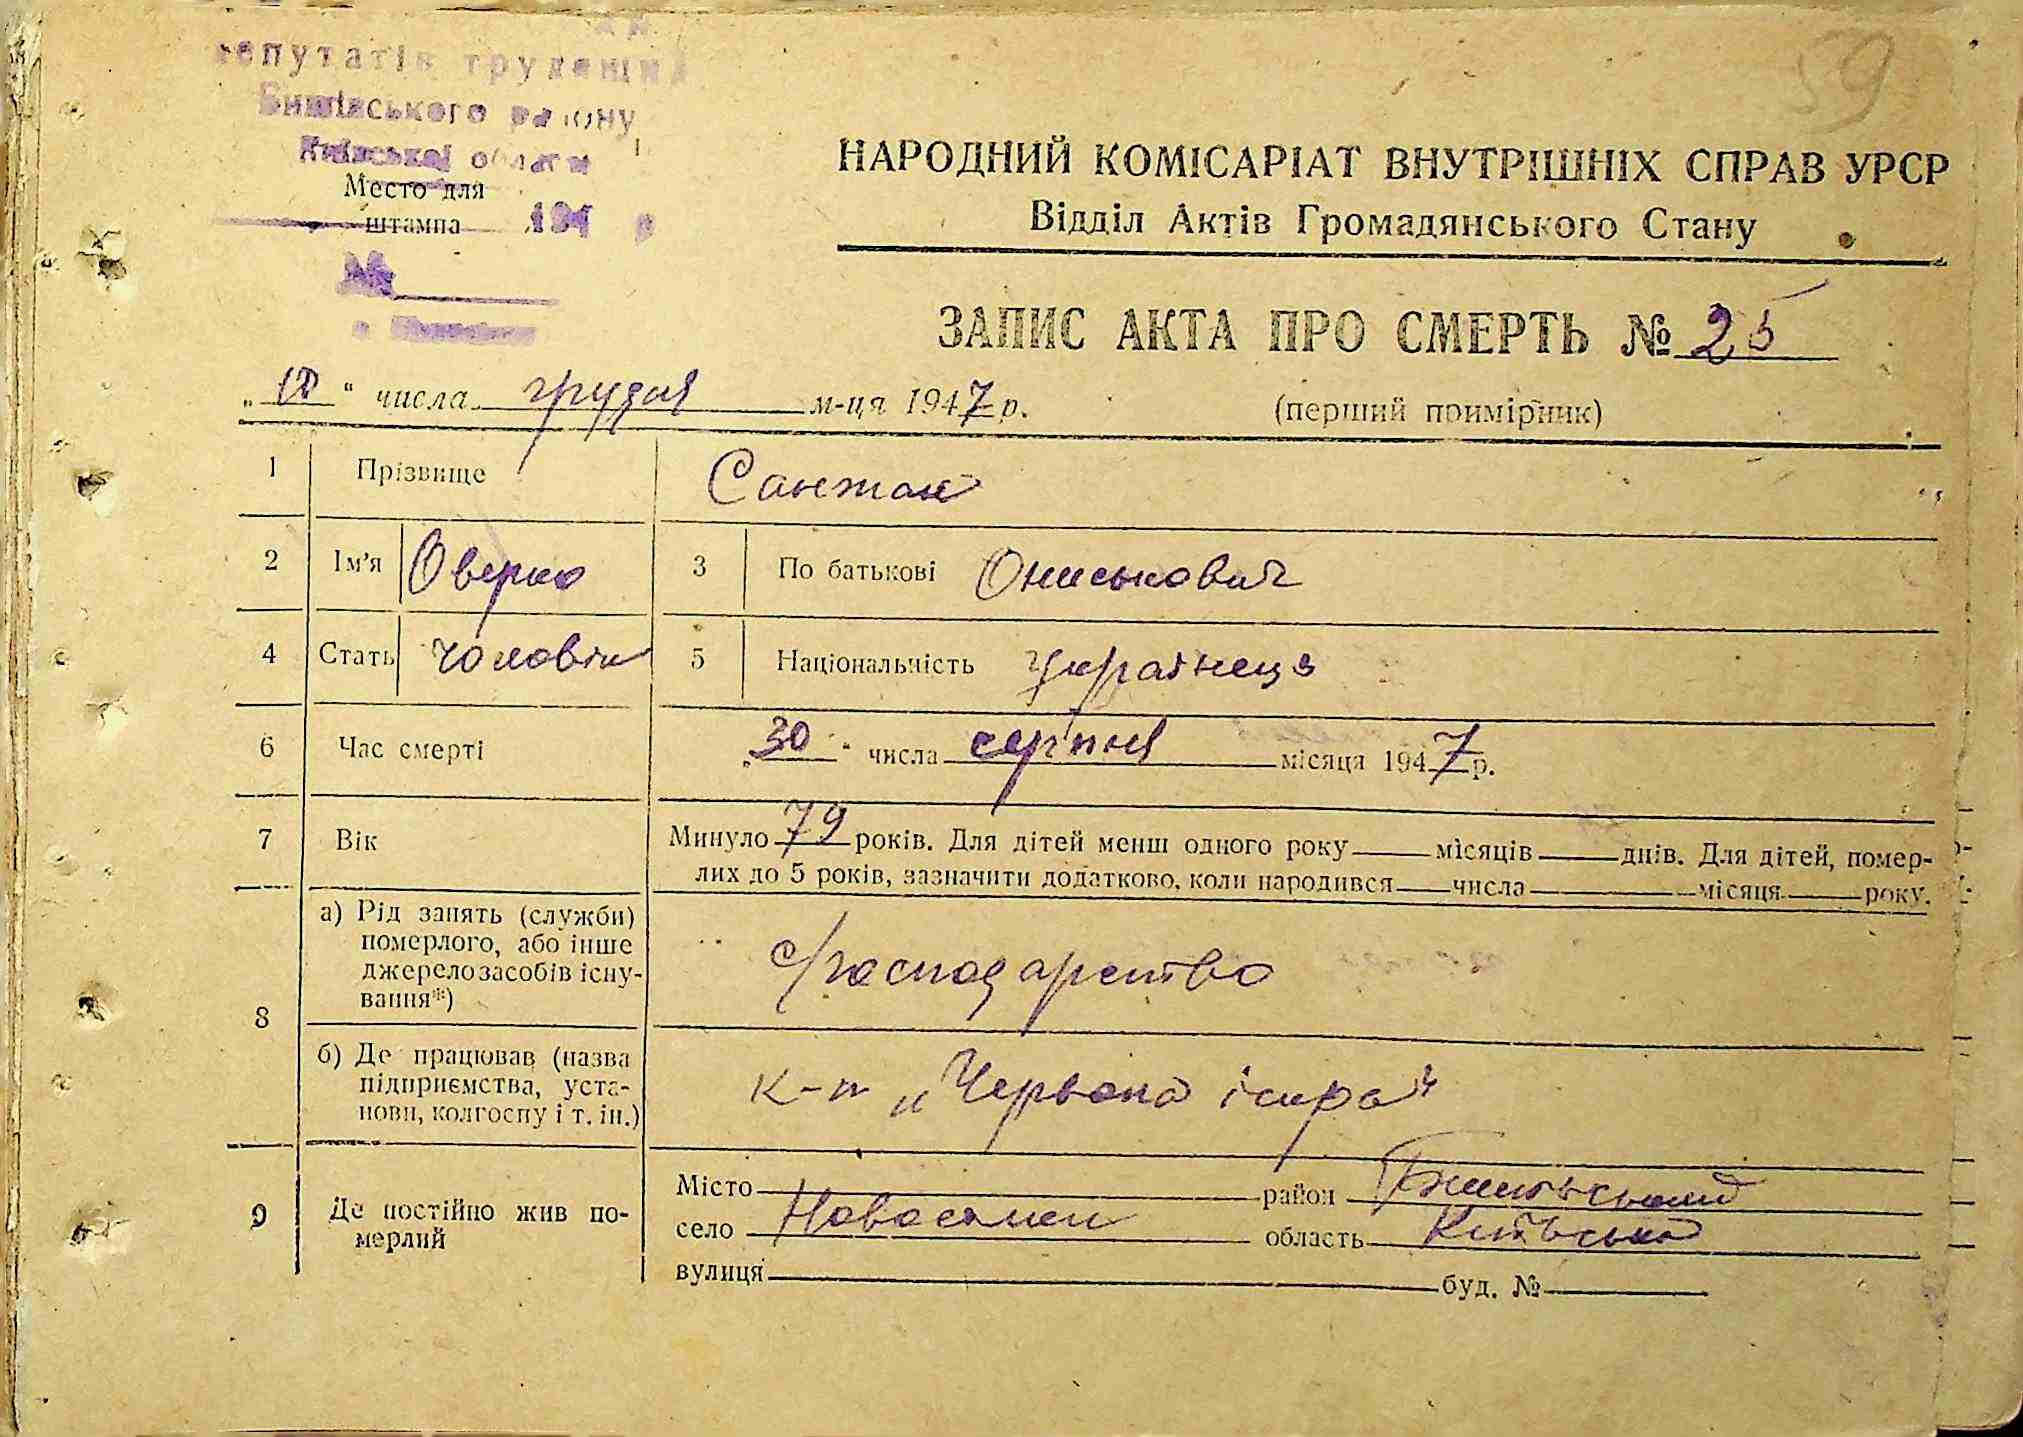 59
депутатів трудящих
Бишівського району
Київської області
Место для
штампа 194 р
№
НАРОДНИЙ КОМІСАРІАТ ВНУТРІШНІХ СПРАВ УРСР
Відділ Актів Громадянського Стану
ЗАПИС АКТА ПРО СМЕРТЬ № 25
" " числа грудня м-ця 1947 р. (перший примірник)
1 Прізвище Санжак
2 Ім'я Оверко 3 По батькові Ониськович
4 Стать чоловік 5 Національність українець
6 Час смерті "30" числа серпня місяця 1947 р.
7 Вік Минуло 79 років. Для дітей менш одного року місяців днів. Для дітей, помер-
лих до 5 років, зазначити додатково, коли народився числа місяця року.
8 а) Рід занять (служби)
померлого, або інше
джерело засобів існу-
вання*)
господарство
б) Де працював (назва
підприємства, уста-
нови, колгоспу і т. ін.)
к-п „Червона іскра"
9 Де постійно жив по-
мерлий
Місто район Бишівський
село область Київська
вулиця буд. №